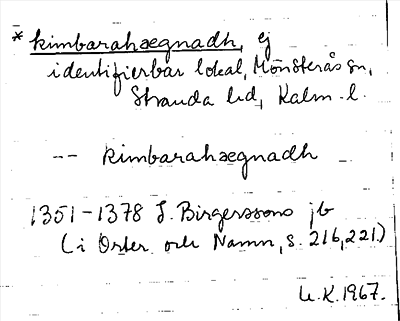 * kimbarahægnadh, ej
identifierbar lokal, Mönsterås sn,
Stranda hd, Kalm. l.
-- kimbarahægnadh
1351-1378 J. Birgerssons jb
(i Orter och Namn, s. 216,221.)
U.K.1967.